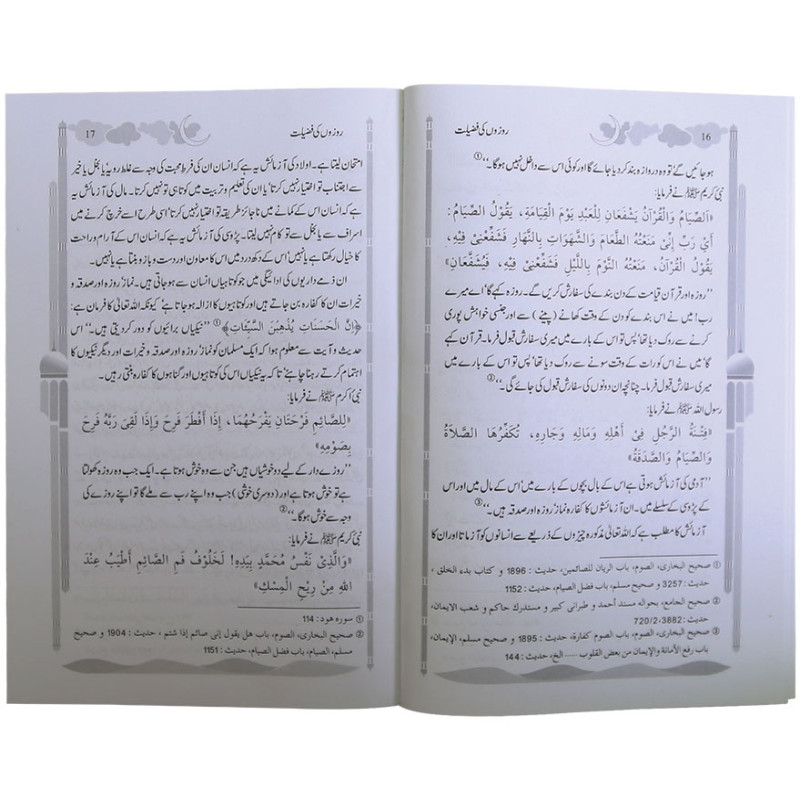 16
روزوں کی فضیلت
ہو جائیں گے، تو وہ دروازہ بند کر دیا جائے گا اور کوئی اس سے داخل نہیں ہوگا۔“①
نبی کریم ﷺ نے فرمایا:
«اَلصِّيَامُ وَالْقُرْآنُ يَشْفَعَانِ لِلْعَبْدِ يَوْمَ الْقِيَامَةِ، يَقُوْلُ الصِّيَامُ:
أَيْ رَبِّ إِنِّيْ مَنَعْتُهُ الطَّعَامَ وَالشَّهَوَاتِ بِالنَّهَارِ فَشَفِّعْنِيْ فِيْهِ،
يَقُوْلُ الْقُرْآنُ، مَنَعْتُهُ النَّوْمَ بِاللَّيْلِ فَشَفِّعْنِيْ فِيْهِ، فَيُشَفَّعَانِ»
”روزہ اور قرآن قیامت کے دن بندے کی سفارش کریں گے۔ روزہ کہے گا: اے میرے
رب! میں نے اس بندے کو دن کے وقت کھانے (پینے) سے اور جنسی خواہش پوری
کرنے سے روک دیا تھا، پس تو اس کے بارے میں میری سفارش قبول فرما۔ قرآن کہے
گا: میں نے اس کو رات کے وقت سونے سے روک دیا تھا، پس تو اس کے بارے میں
میری سفارش قبول فرما۔ چنانچہ ان دونوں کی سفارش قبول کی جائے گی۔“②
رسول اللہ ﷺ نے فرمایا:
«فِتْنَةُ الرَّجُلِ فِيْ أَهْلِهِ وَمَالِهِ وَجَارِهِ، تُكَفِّرُهَا الصَّلَاةُ
وَالصِّيَامُ وَالصَّدَقَةُ»
”آدمی کی آزمائش ہوتی ہے اس کے بال بچوں کے بارے میں، اس کے مال میں اور اس
کے پڑوسی کے سلسلے میں۔ ان آزمائشوں کا کفارہ نماز، روزہ اور صدقہ ہیں۔“③
آزمائش کا مطلب ہے کہ اللہ تعالیٰ مذکورہ چیزوں کے ذریعے سے انسانوں کو آزماتا اور ان کا
① صحیح البخاری، الصوم، باب الریان للصائمین، حدیث : 1896 و کتاب بدء الخلق ،
حدیث : 3257 و صحیح مسلم، باب فضل الصیام، حدیث : 1152
② صحیح الجامع، بحوالہ مسند أحمد و طبرانی کبیر و مستدرک حاکم و شعب الایمان،
حدیث :3882، 720/2
③ صحیح البخاری، الصوم، باب الصوم کفارة، حدیث : 1895 و صحیح مسلم، الإیمان،
باب رفع الأمانة والإیمان من بعض القلوب ..... الخ، حدیث : 144
روزوں کی فضیلت
17
امتحان لیتا ہے۔ اولاد کی آزمائش یہ ہے کہ انسان ان کی فرط محبت کی وجہ سے غلط رویہ یا بخل یا خیر
سے اجتناب تو اختیار نہیں کرتا؟ یا ان کی تعلیم و تربیت میں کوتاہی تو نہیں کرتا۔ مال کی آزمائش یہ
ہے کہ انسان اس کے کمانے میں ناجائز طریقہ تو اختیار نہیں کرتا؟ اسی طرح اسے خرچ کرنے میں
اسراف سے یا بخل سے تو کام نہیں لیتا۔ پڑوسی کی آزمائش یہ ہے کہ انسان اس کے آرام و راحت
کا خیال رکھتا ہے یا نہیں؟ اس کے دکھ درد میں اس کا معاون اور دست و بازو بنتا ہے یا نہیں۔
ان ذمے داریوں کی ادائیگی میں جو کوتاہیاں انسان سے ہو جاتی ہیں۔ نماز، روزہ اور صدقہ و
خیرات ان کا کفارہ بن جاتے ہیں اور کوتاہیوں کا ازالہ ہو جاتا ہے، کیونکہ اللہ تعالیٰ کا فرمان ہے:
﴿اِنَّ الْحَسَنَاتِ يُذْهِبْنَ السَّيِّئَاتِ﴾① ”نیکیاں برائیوں کو دور کر دیتی ہیں۔“ اس
حدیث و آیت سے معلوم ہوا کہ ایک مسلمان کو نماز، روزہ اور صدقہ و خیرات اور دیگر نیکیوں کا
اہتمام کرتے رہنا چاہیے، تاکہ یہ نیکیاں اس کی کوتاہیوں اور گناہوں کا کفارہ بنتی رہیں۔
نبی اکرم ﷺ نے فرمایا:
«لِلصَّائِمِ فَرْحَتَانِ يَفْرَحُهُمَا، إِذَا أَفْطَرَ فَرِحَ وَإِذَا لَقِيَ رَبَّهُ فَرِحَ
بِصَوْمِهِ»
”روزے دار کے لیے دو خوشیاں ہیں جن سے وہ خوش ہوتا ہے۔ ایک جب وہ روزہ کھولتا
ہے تو خوش ہوتا ہے اور (دوسری خوشی) جب وہ اپنے رب سے ملے گا تو اپنے روزے کی
وجہ سے خوش ہوگا۔“②
نبی کریم ﷺ نے فرمایا:
«وَالَّذِيْ نَفْسُ مُحَمَّدٍ بِيَدِهِ! لَخُلُوْفُ فَمِ الصَّائِمِ أَطْيَبُ عِنْدَ
اللهِ مِنْ رِيْحِ الْمِسْكِ»
① سورہ ھود : 114
② صحیح البخاری، الصوم، باب ھل یقول إنی صائم إذا شتم ، حدیث : 1904 و صحیح
مسلم، الصیام، باب فضل الصیام، حدیث : 1151